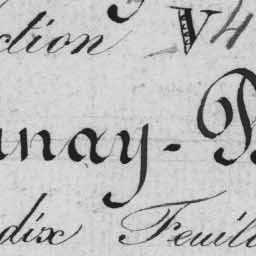 ction V4
nay-
dix Feuill